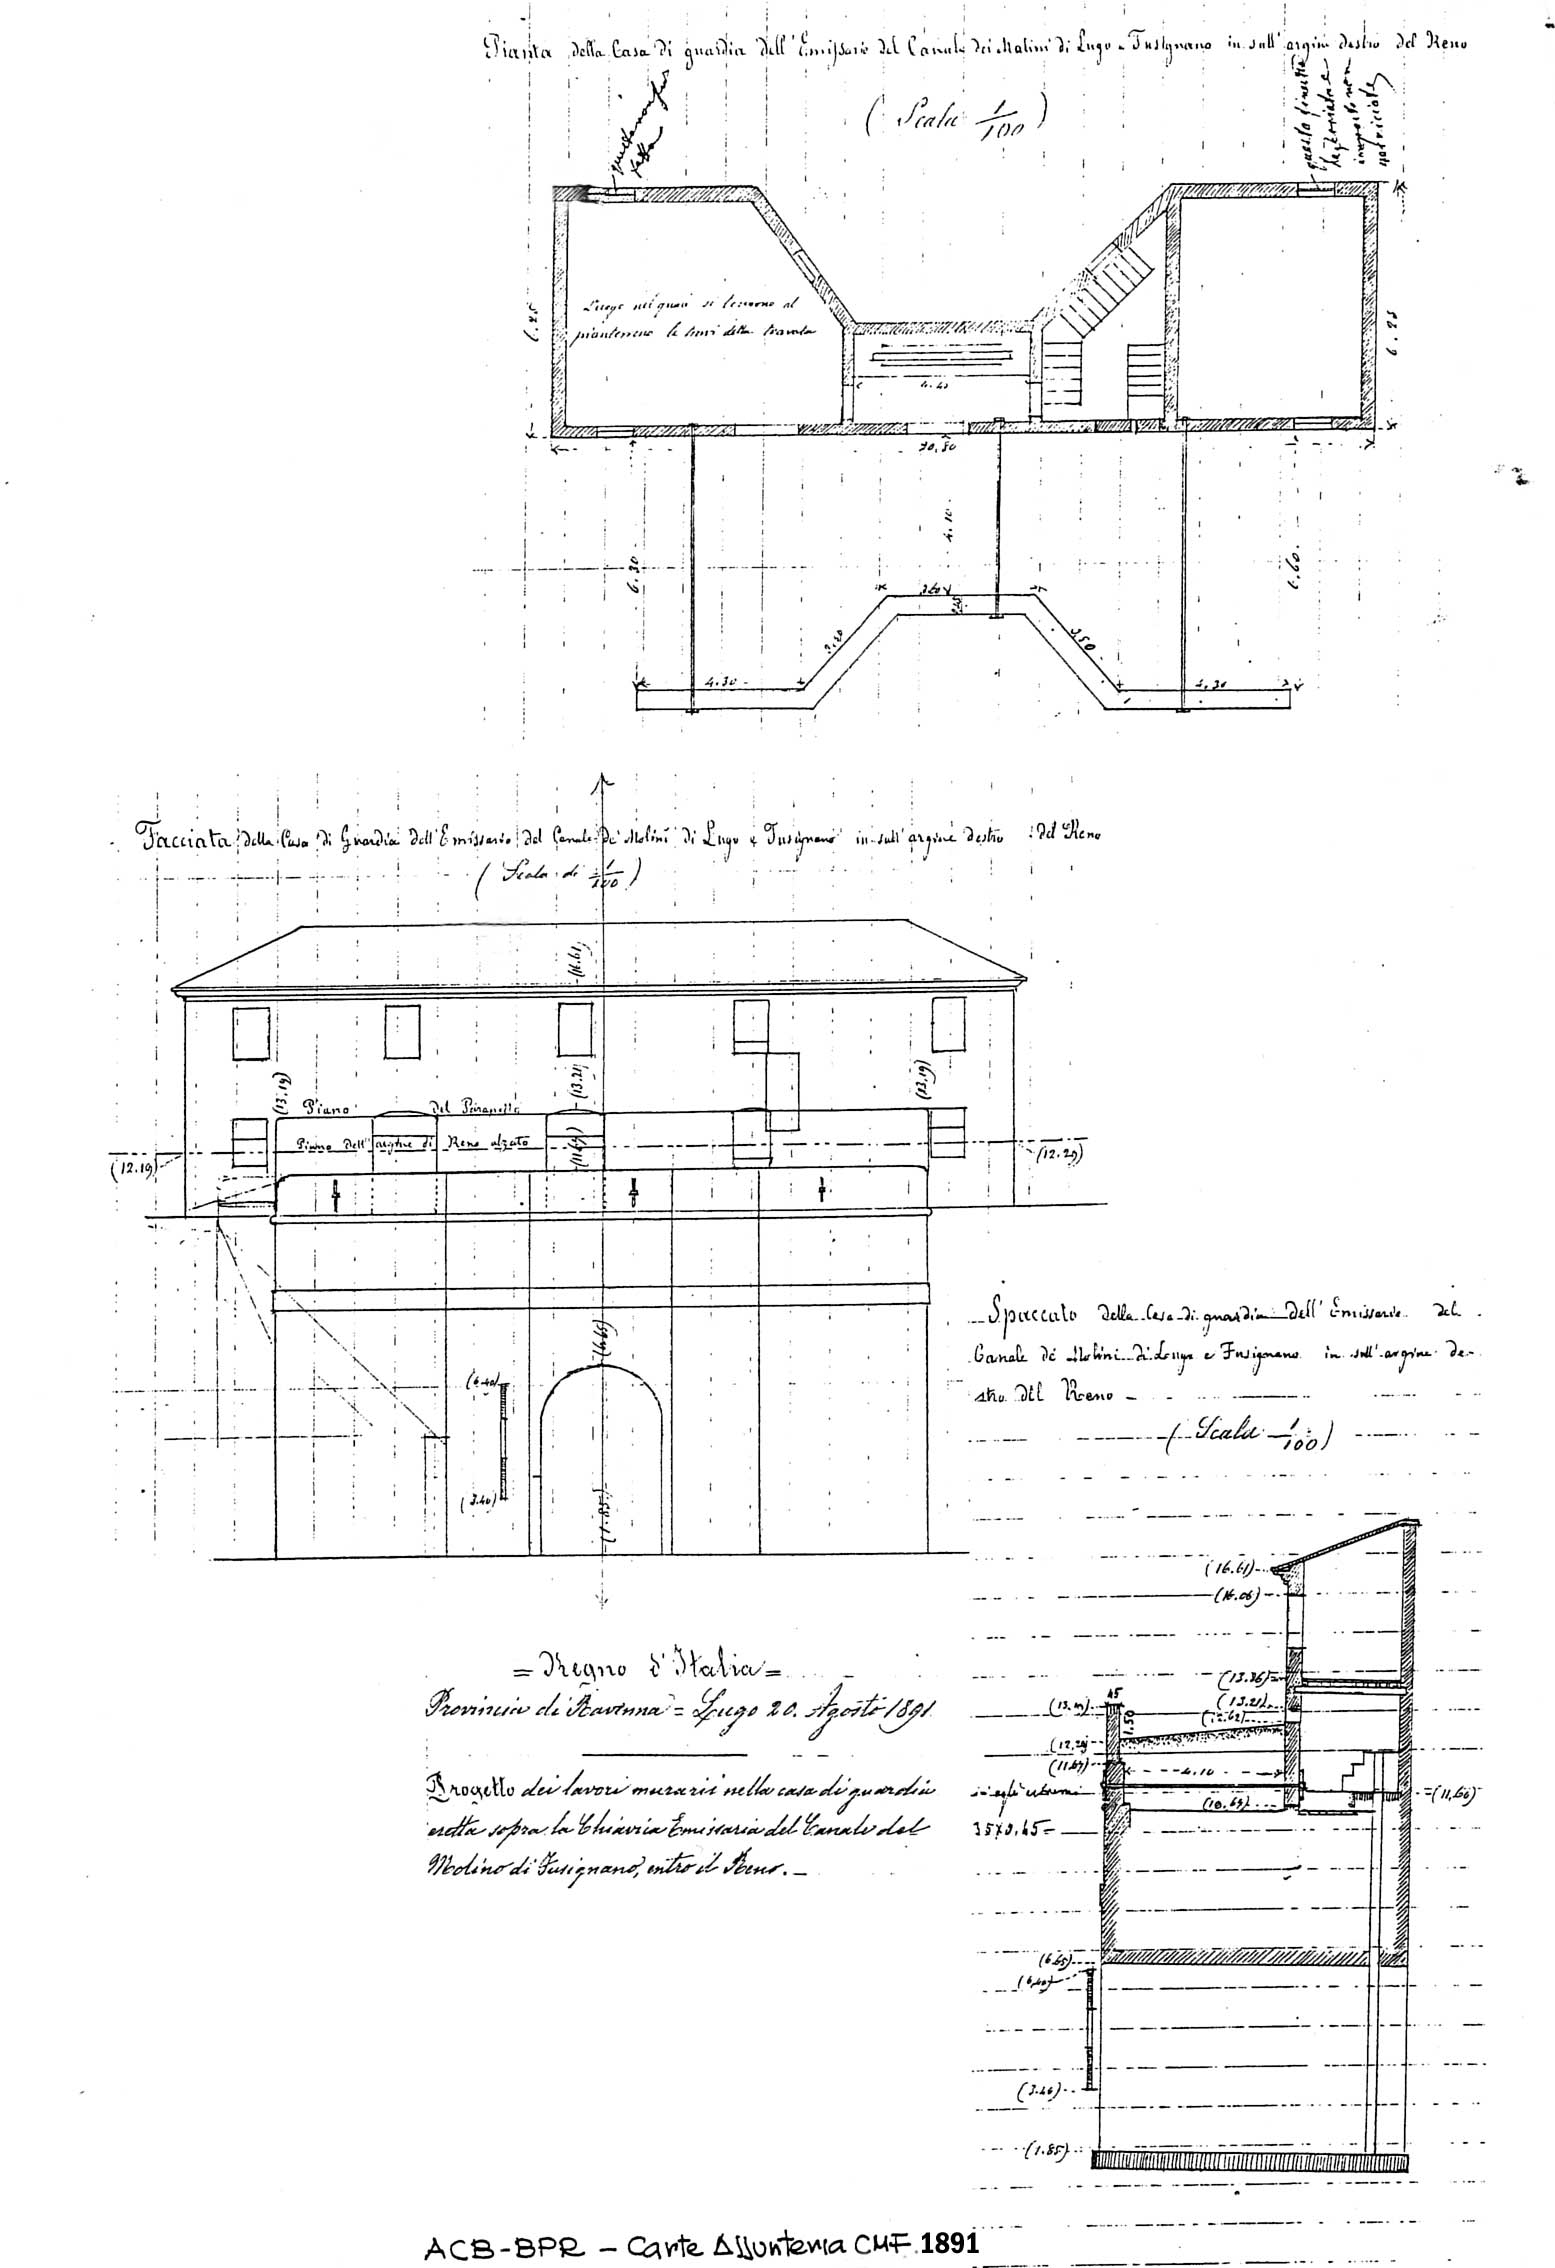 Pianta della Casa di guardia dell'Emissario del Canale dei Molini di Lugo e Fusignano in sull'argine destro del Reno
(Scala 1/100)
questa finestra
Luogo nei quali si tengono al
pianterreno le travi della travata
6.25
6.25
4.40
20,80
6.30
4.10
6.60.
3.60
3.50
3.50
4.30
4.30
Facciata della Casa di Guardia dell'Emissario del Canale de' Molini di Lugo e Fusignano in sull'argine destro del Reno
(Scala di 1/100)
(16.61)
(13.19)
(13.21)
(13.19)
Piano del Parapetto
Piano dell'argine di Reno alzato
(12.19)
(12.29)
(6.65)
(6.40)
(3.40)
(1.85)
Spaccato della Casa di guardia dell'Emissario del
Canale de' Molini di Lugo e Fusignano in sull'argine de-
stro del Reno -
(Scala 1/100)
(16.61)
(16.06)
(13.36)
45
(13.21)
(12.62)
1.50
(12.29)
(11.67)
4.10
(10.67)
=(11,66)
35x0,45=
(6.65)
(6.40)
(3.40)
(1.85)
= Regno d'Italia =
Provincia di Ravenna = Lugo 20. Agosto 1891
Progetto dei lavori murarii nella casa di guardia
eretta sopra la Chiavica Emissaria del Canale del
Molino di Fusignano, entro il Reno. -
ACB-BPR - Carte Assunteria CMF 1891